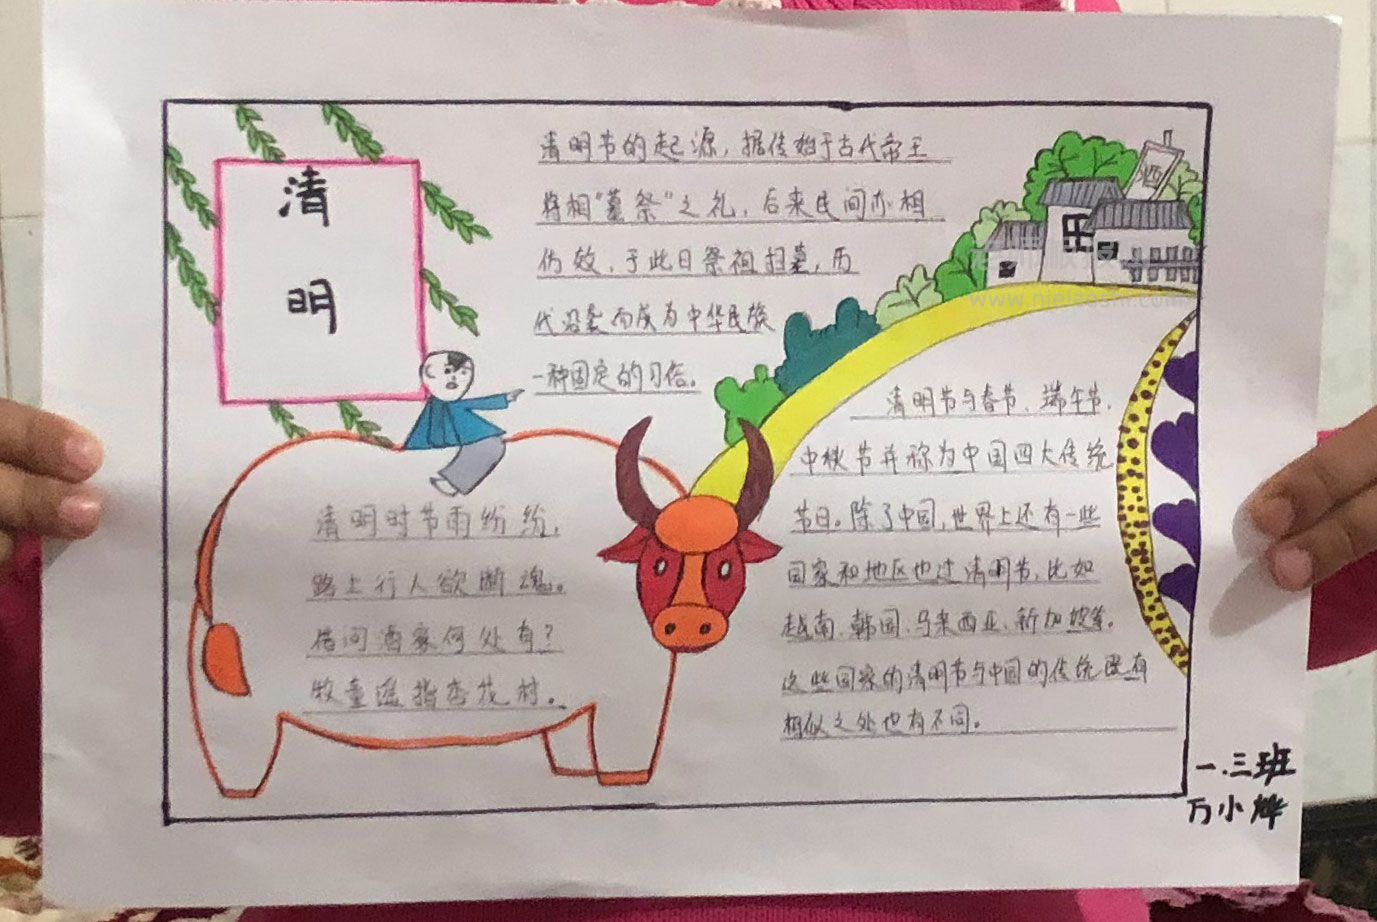 清
明
清明节的起源，据传始于古代帝王
将相“墓祭”之礼，后来民间亦相
仿效，于此日祭祖扫墓，历
代沿袭而成为中华民族
一种固定的习俗。
清明时节雨纷纷，
路上行人欲断魂。
借问酒家何处有？
牧童遥指杏花村。
酒
清明节与春节、端午节、
中秋节并称为中国四大传统
节日。除了中国，世界上还有一些
国家和地区也过清明节，比如
越南、韩国、马来西亚、新加坡等。
这些国家的清明节与中国的传统既有
相似之处也有不同。
一.三班
万小烨